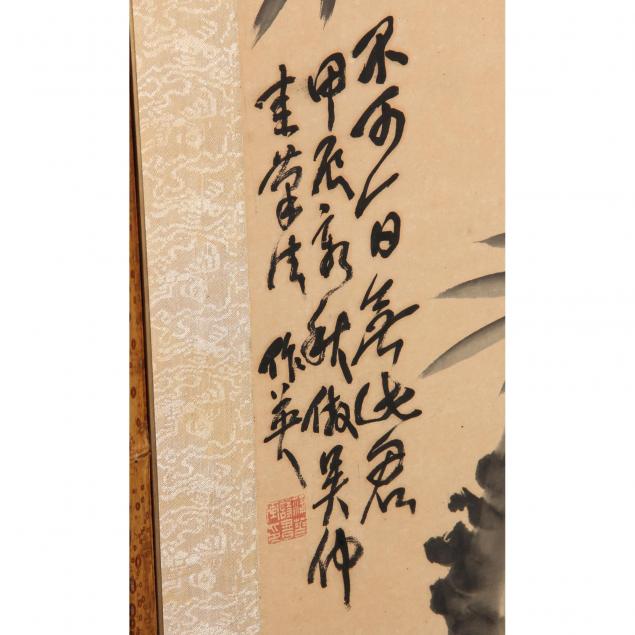 不可一日無此君
甲辰初秋倣吳仲
圭筆法 作英